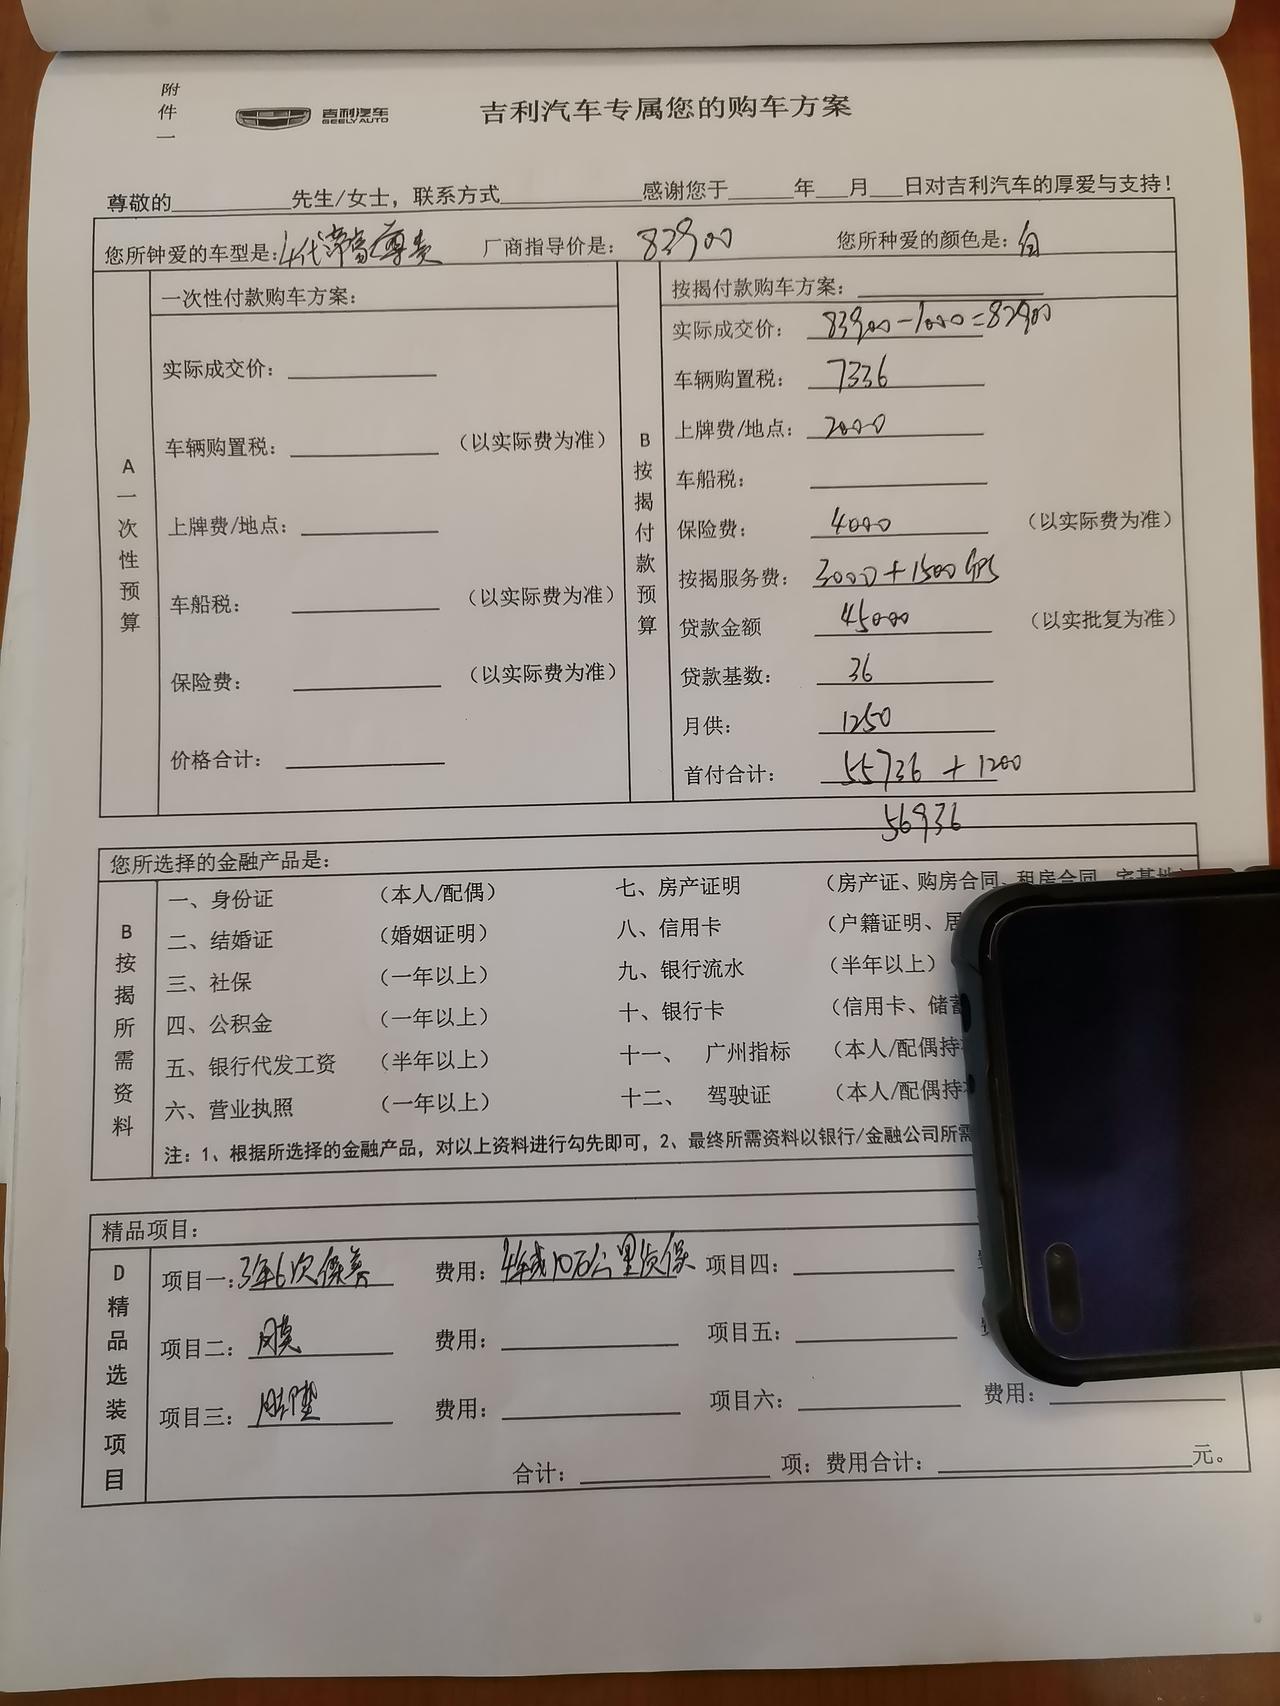 附件一
吉利汽车
GEELY AUTO
吉利汽车专属您的购车方案
尊敬的____先生/女士，联系方式____感谢您于____年___月___日对吉利汽车的厚爱与支持！
您所钟爱的车型是：4代帝豪尊贵 厂商指导价是： 83900 您所种爱的颜色是：白
A一次性预算
一次性付款购车方案：
实际成交价：
车辆购置税： （以实际费为准）
上牌费/地点：
车船税： （以实际费为准）
保险费： （以实际费为准）
价格合计：
B按揭付款预算
按揭付款购车方案：
实际成交价： 83900-1000=82900
车辆购置税： 7336
上牌费/地点： 2000
车船税：
保险费： 4000 （以实际费为准）
按揭服务费： 3000+1500 GPS
贷款金额 45000 （以实批复为准）
贷款基数： 36
月供： 1250
首付合计： 55736 + 1200
56936
您所选择的金融产品是：
B按揭所需资料
一、身份证 （本人/配偶） 七、房产证明 （房产证、购房合同、租房合同、宅基地）
二、结婚证 （婚姻证明） 八、信用卡 （户籍证明、居
三、社保 （一年以上） 九、银行流水 （半年以上）
四、公积金 （一年以上） 十、银行卡 （信用卡、储蓄
五、银行代发工资 （半年以上） 十一、 广州指标 （本人/配偶持
六、营业执照 （一年以上） 十二、 驾驶证 （本人/配偶持
注：1、根据所选择的金融产品，对以上资料进行勾先即可，2、最终所需资料以银行/金融公司所需
精品项目：
D精品选装项目
项目一：3年6次保养 费用：4年或10万公里质保 项目四：
项目二： 膜 费用： 项目五：
项目三： 脚垫 费用： 项目六： 费用：
合计： 项；费用合计： 元。